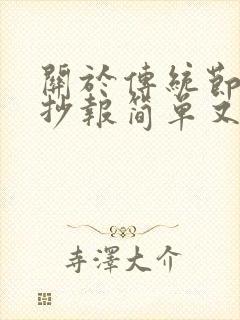 關於傳統節
抄報简单又
寺澤大介